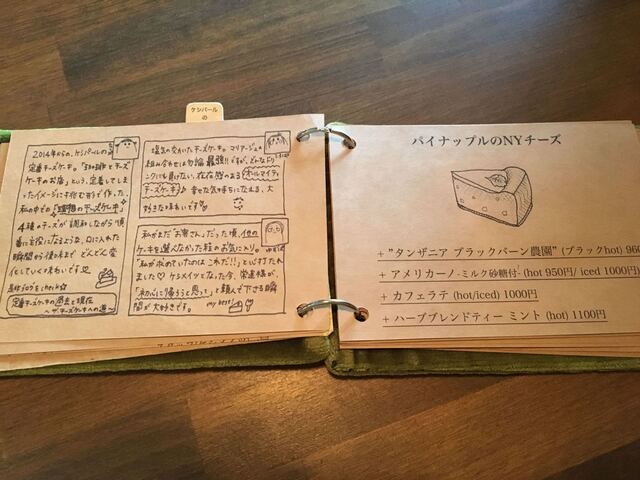 ケシパールの
2014年からの、ケシパールの
定番チーズケーキ。「珈琲とチーズ
ケーキのお店」という、定着してしま
ったイメージに
私の中での「理想のチーズケーキ」
4種のチーズが調和しながら順
番に主役になるような、口に入れた
瞬間から後味まで どんどん変
化していく味わいです♡
定番チーズケーキの過去と現在
〜ザ・チーズケーキへの道〜
組み合わせは勿論 最強!!ですが、どんなドリ
ンクにも負けない、存在感のあるオールマイティ
チーズケーキ♪ 幸せな気持ちになれる、大
好きな味わいです
私がまだ「お客さん」だった頃、他の
ケーキを選べなかった程のお気に入り。
「私が求めていたのはこれだ!!」といきすたれ
ました♡ ケシメイツとなった今、常連様が、
「初心に帰ろうと思って」と頼んで下さる瞬
間が大好きです。 my best!
パイナップルのNYチーズ
+ "タンザニア ブラックバーン農園" (ブラックhot) 960
+ アメリカーノ-ミルク砂糖付- (hot 950円/ iced 1000円)
+ カフェラテ (hot/iced) 1000円
+ ハーブブレンドティー ミント (hot) 1100円